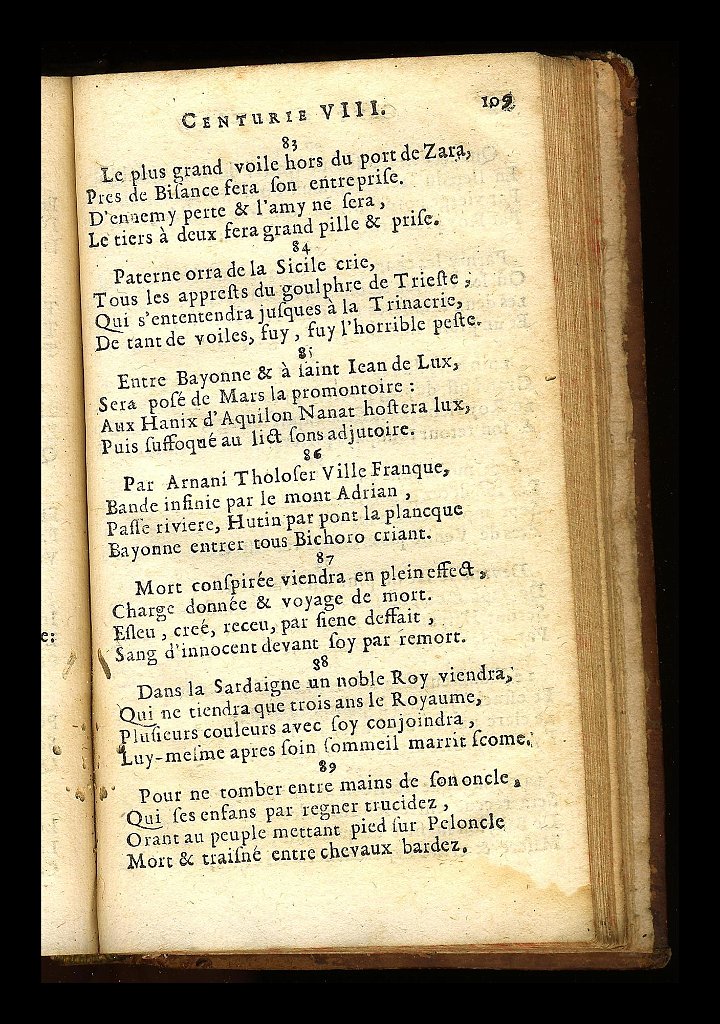 CENTURIE VIII. 109
83
Le plus grand voile hors du port de Zara,
Pres de Biſance fera ſon entrepriſe.
D'ennemy perte & l'amy ne ſera,
Le tiers à deux fera grand pille & priſe.
84
Paterne orra de la Sicile crie,
Tous les appreſts du goulphre de Trieſte ;
Qui s'ententendra juſques à la Trinacrie,
De tant de voiles, fuy, fuy l'horrible peſte.
85
Entre Bayonne & à ſaint Iean de Lux,
Sera poſé de Mars la promontoire :
Aux Hanix d'Aquilon Nanat hoſtera lux,
Puis ſuffoqué au lict ſons adjutoire.
86
Par Arnani Tholoſer Ville Franque,
Bande infinie par le mont Adrian ,
Paſſe riviere, Hutin par pont la plancque
Bayonne entrer tous Bichoro criant.
87
Mort conſpirée viendra en plein effect,
Charge donnée & voyage de mort.
Eſleu , creé, receu, par ſiene deffait ,
Sang d'innocent devant ſoy par remort.
88
Dans la Sardaigne un noble Roy viendra,
Qui ne tiendra que trois ans le Royaume,
Pluſieurs couleurs avec ſoy conjoindra ,
Luy-meſme apres ſoin ſommeil marrit ſcome.
89
Pour ne tomber entre mains de ſon oncle,
Qui ſes enfans par regner trucidez ,
Orant au peuple mettant pied ſur Peloncle
Mort & traiſné entre chevaux bardez.
e: